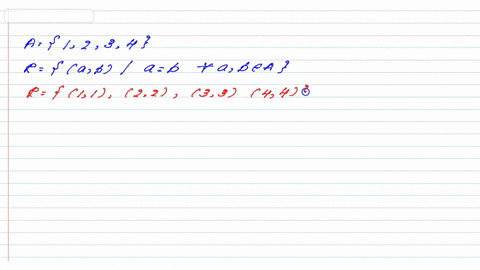 A = { 1, 2, 3, 4 }
R = { (a, b) / a = b ∀ a, b ∈ A }
R = { (1, 1), (2, 2), (3, 3) (4, 4) }